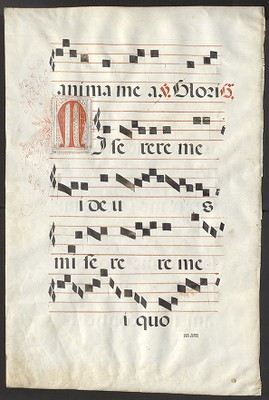 anima me a. V. Glori G.
MIse rere me
i de u s
mi se re re me
i quo